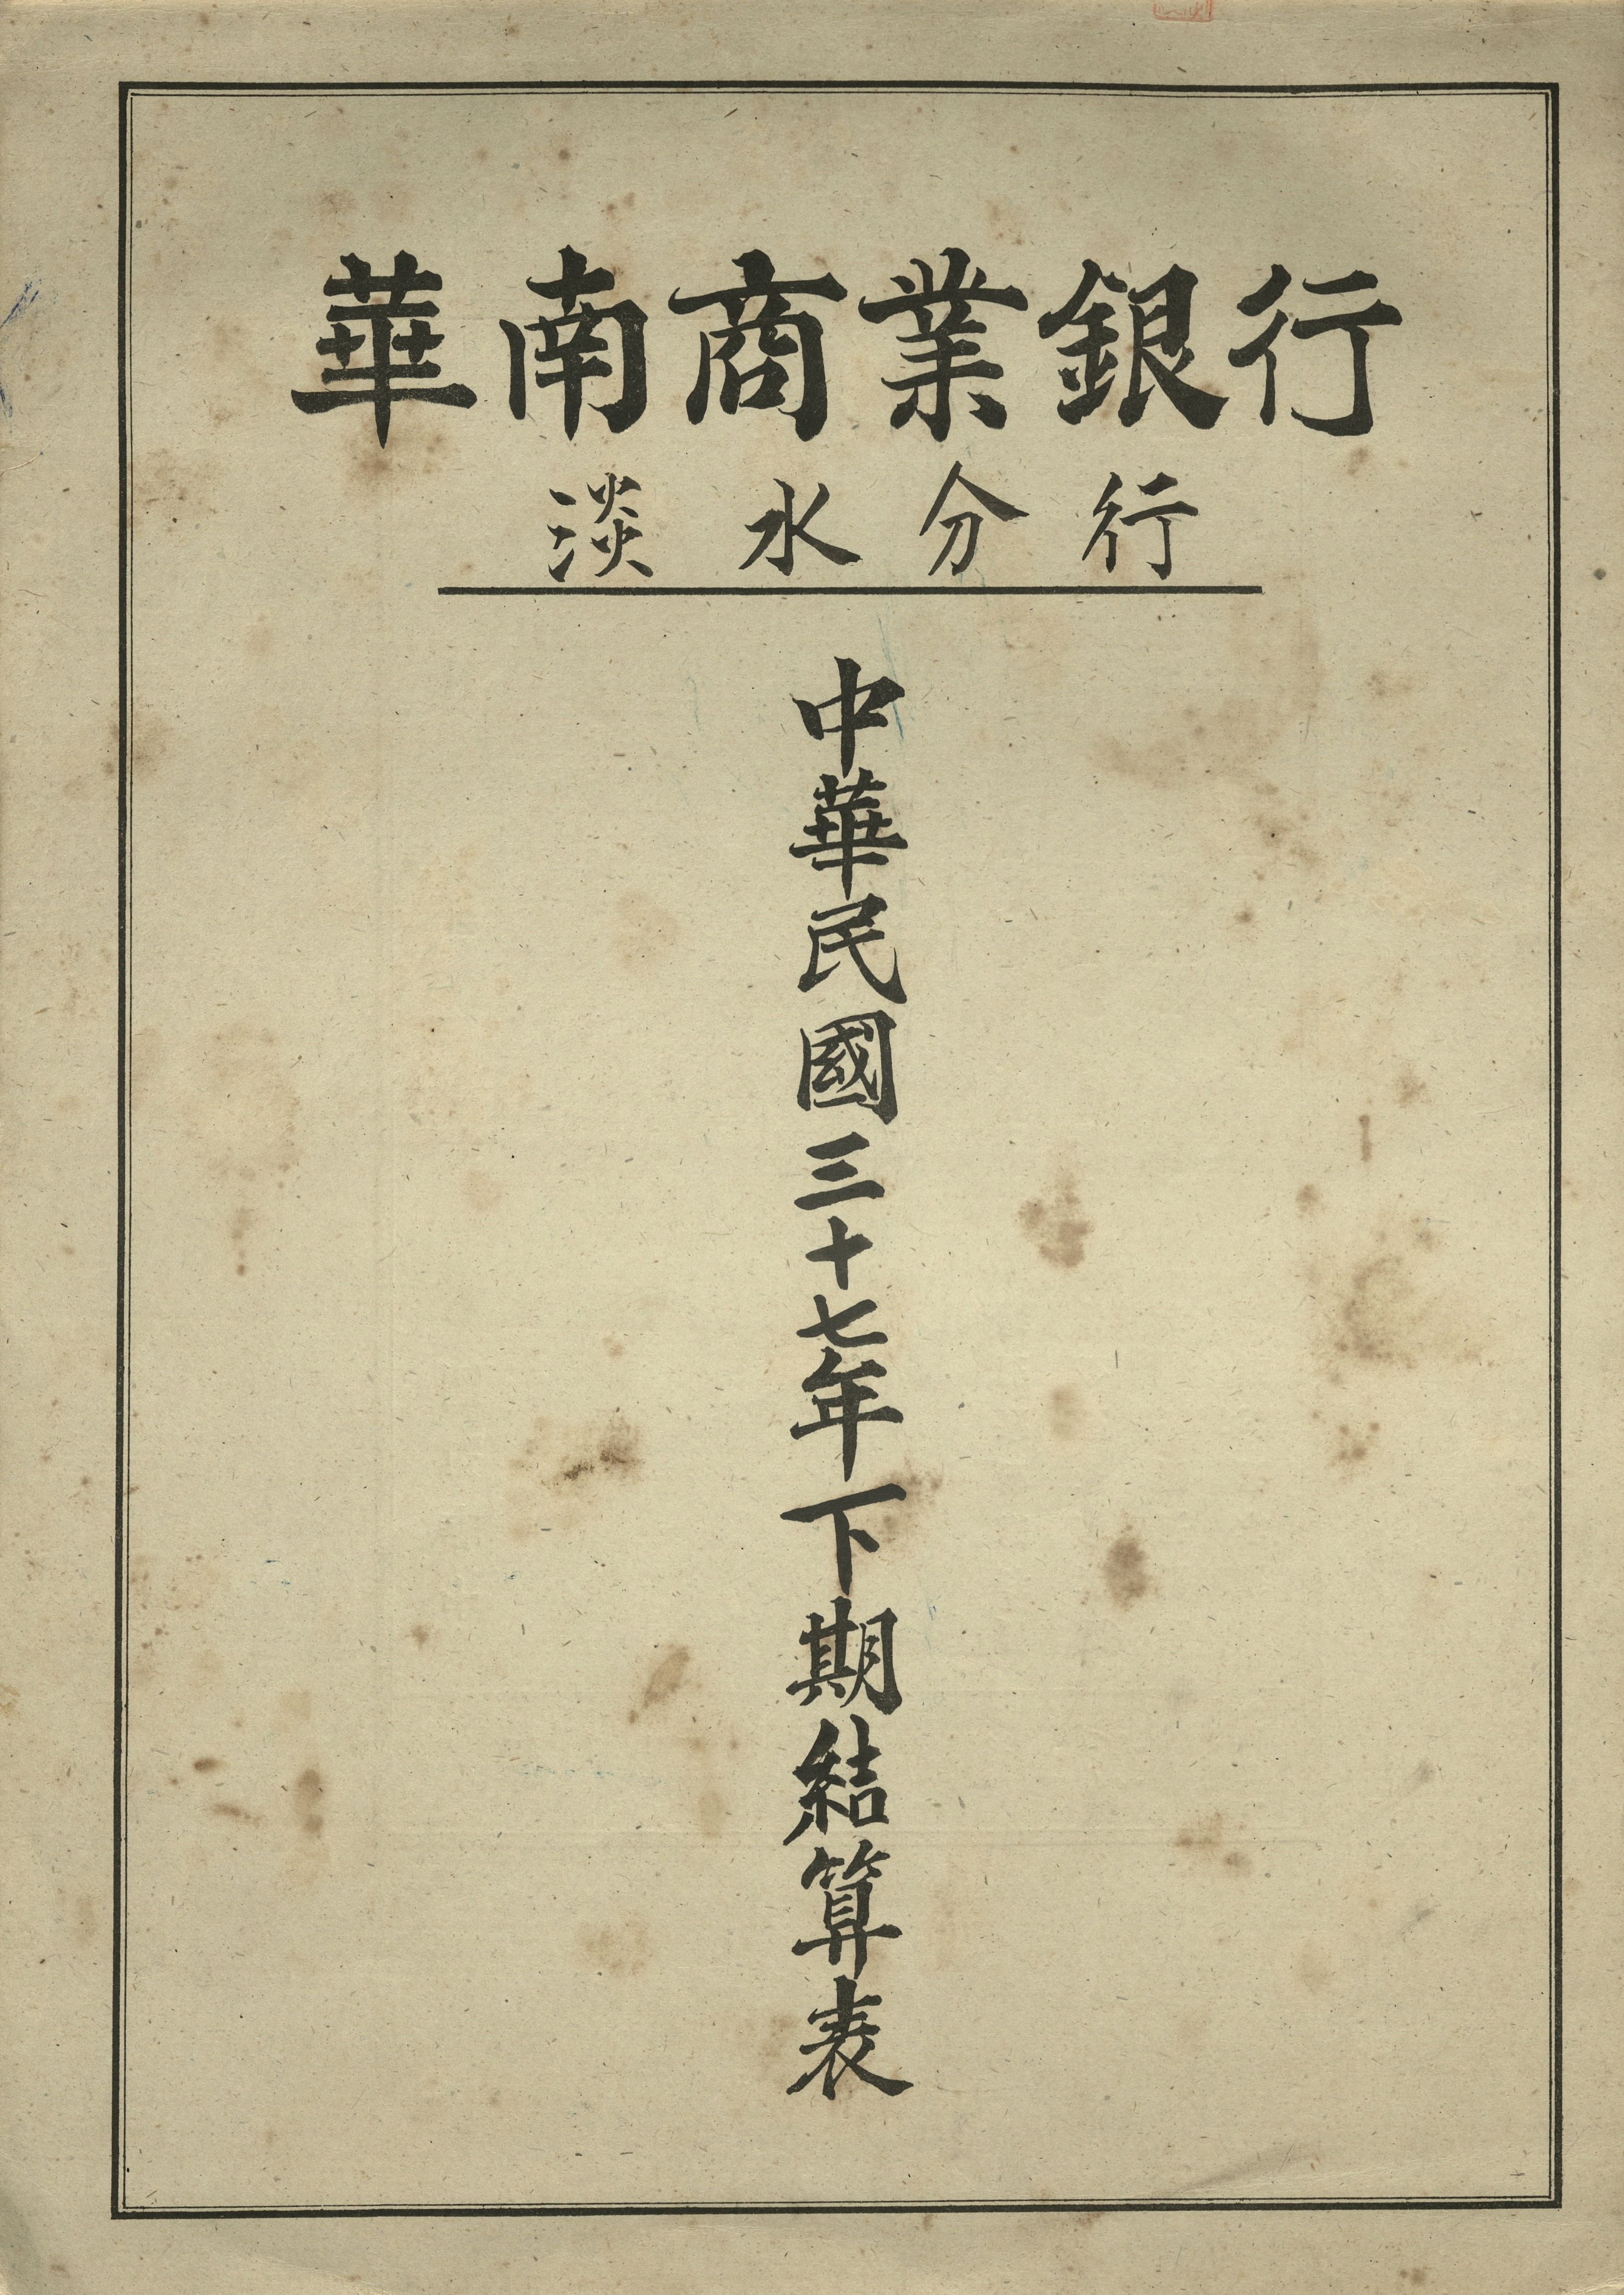 華南商業銀行
淡水分行
中華民國三十七年下期結算表